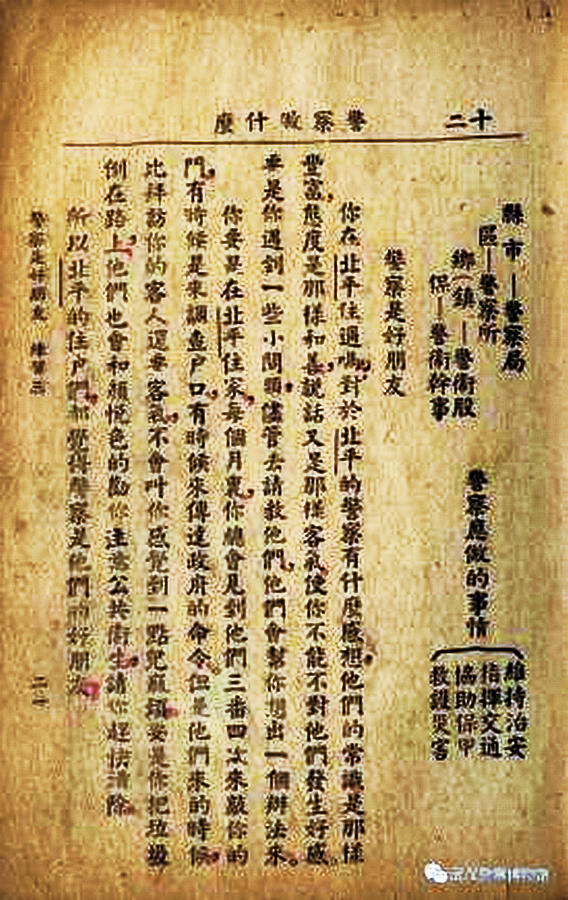 十二
警察做什麼
縣市—警察局
區—警察所
鄉(鎮)—警衛股
保—警衛幹事
警察應做的事情
維持治安
指揮交通
協助保甲
救護災害
警察是好朋友
你在北平住過嗎,對於北平的警察有什麼感想,他們的常識是那樣
豐富,態度是那樣和善,說話又是那樣客氣,使你不能不對他們發生好感。
要是你遇到一些小問題,儘管去請教他們,他們會幫你想出一個辦法來。
你要是在北平住家,每個月裏,你總會見到他們三番四次來敲你的
門,有時候是來調查戶口,有時候來傳達政府的命令,但是他們來的時候,
比拜訪你的客人還要客氣,不會叫你感覺到一點兒麻煩,要是你把垃圾
倒在路上,他們也會和顏悅色的勸你注意公共衛生,請你趕快清除。
所以北平的住戶們,都覺得警察是他們的好朋友。
警察是好朋友 練習五